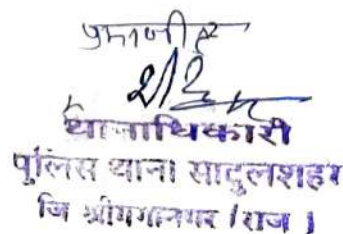 प्रमाणित
थानाधिकारी
पुलिस थाना सादुलशहर
जि श्रीगंगानगर (राज)